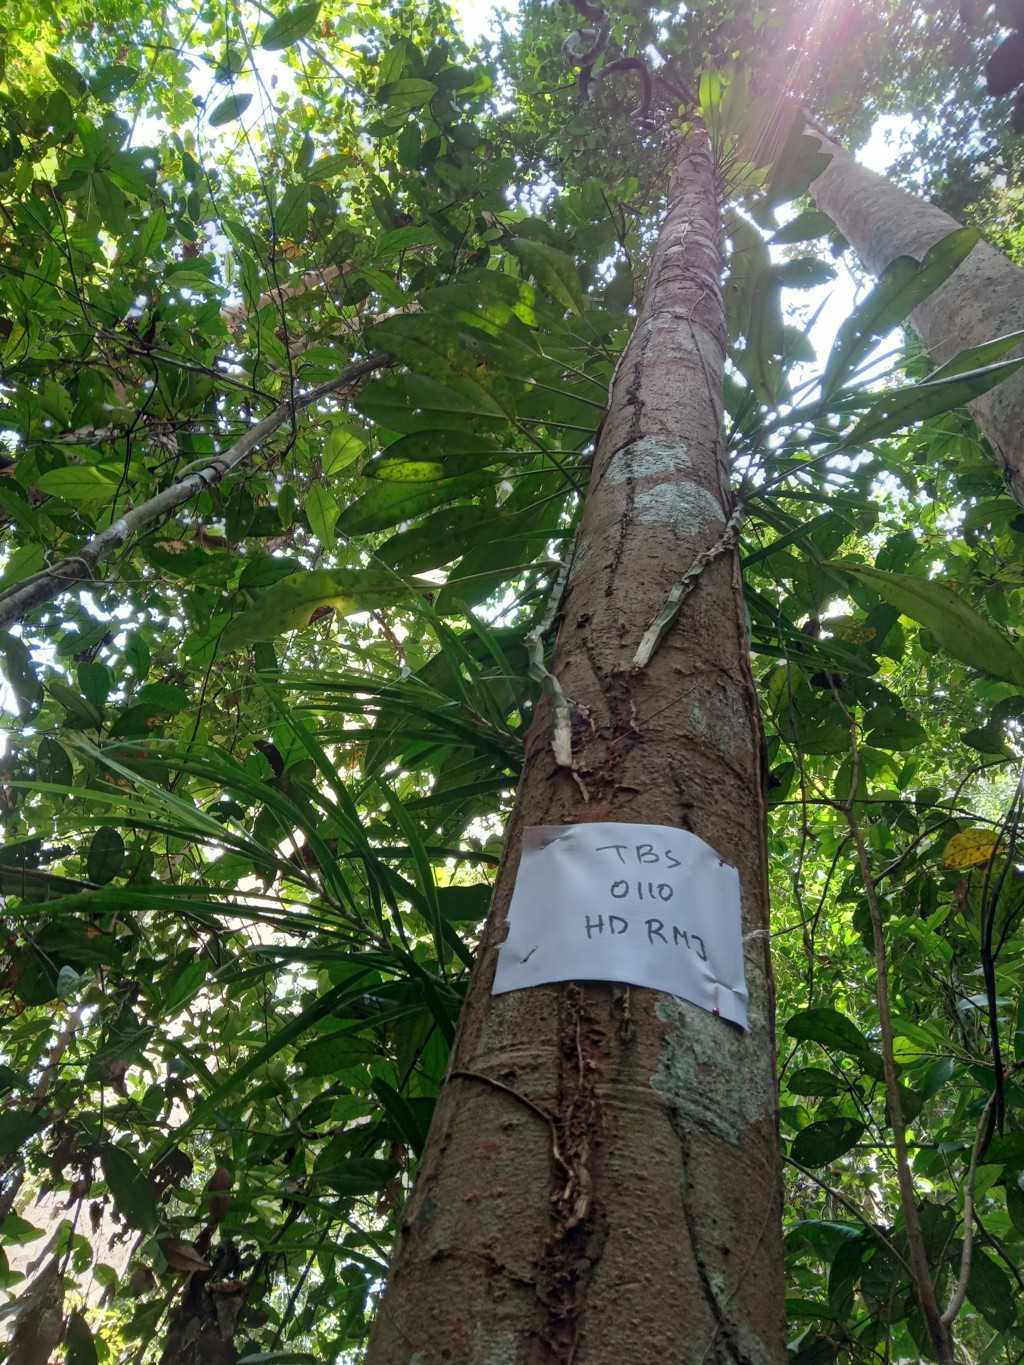 TBS
0110
HD RMJ